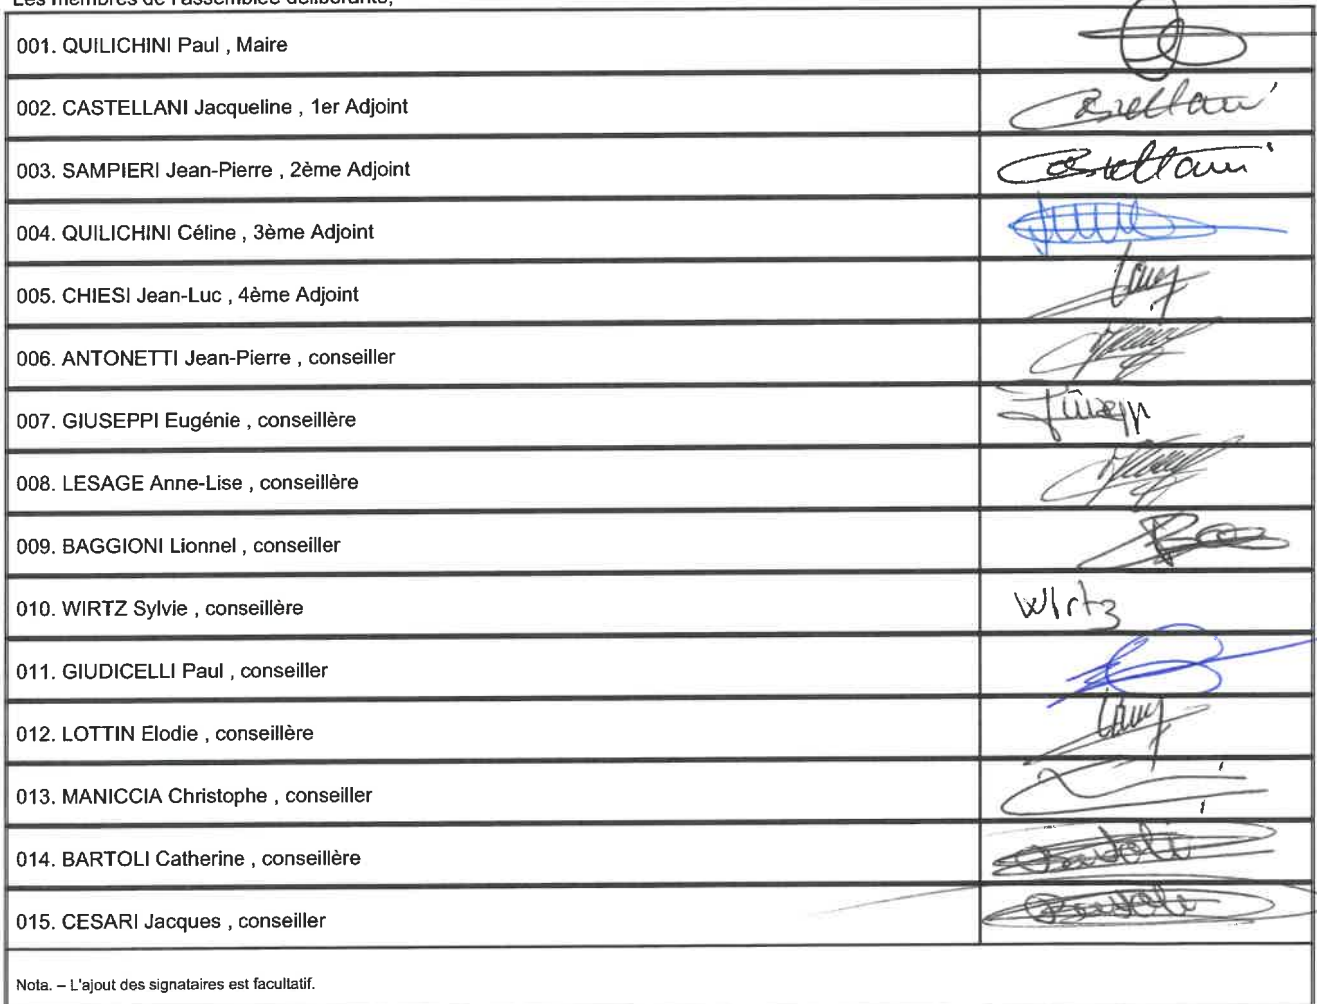 Les membres de l'assemblée délibérante,
001. QUILICHINI Paul , Maire
002. CASTELLANI Jacqueline , 1er Adjoint Castellani
003. SAMPIERI Jean-Pierre , 2ème Adjoint Castellani
004. QUILICHINI Céline , 3ème Adjoint
005. CHIESI Jean-Luc , 4ème Adjoint
006. ANTONETTI Jean-Pierre , conseiller
007. GIUSEPPI Eugénie , conseillère
008. LESAGE Anne-Lise , conseillère
009. BAGGIONI Lionnel , conseiller
010. WIRTZ Sylvie , conseillère Wirtz
011. GIUDICELLI Paul , conseiller
012. LOTTIN Elodie , conseillère
013. MANICCIA Christophe , conseiller
014. BARTOLI Catherine , conseillère Bartoli
015. CESARI Jacques , conseiller Bartoli
Nota. – L'ajout des signataires est facultatif.